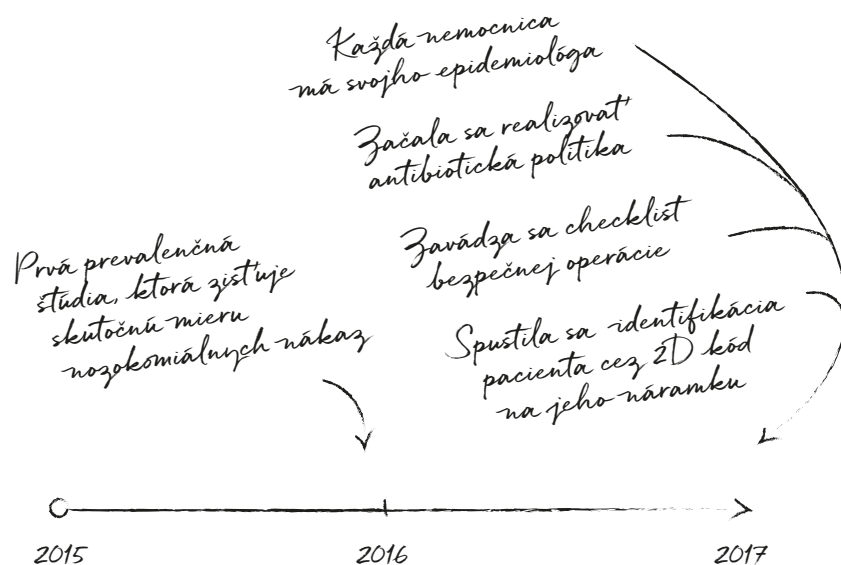 Každá nemocnica
má svojho epidemiológa
Začala sa realizovať
antibiotická politika
Zavádza sa checklist
bezpečnej operácie
Prvá prevalenčná
štúdia, ktorá zisťuje
skutočnú mieru
nozokomiálnych nákaz
Spustila sa identifikácia
pacienta cez 2D kód
na jeho náramku
2015
2016
2017